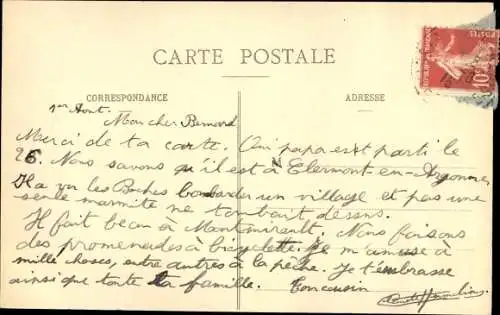 CARTE POSTALE
CORRESPONDANCE
ADRESSE
1er Aout.
Mon cher Bernard
Merci de ta carte. Oui papa est parti le
26. Nous savons qu'il est à Clermont-en-Argonne,
Il a vu les Boches bombarder un village et pas une
seule marmite ne tombait dessus.
Il fait beau à Montmirault. Nous faisons
des promenades à bicyclette. Je m'amuse à
mille choses, entre autres à la pêche. Je t'embrasse
ainsi que toute ta famille. Ton cousin
10